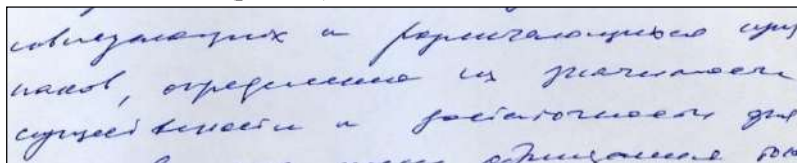 совпадающих и различающихся приз
наков, определение их значимости
существенности и достаточности для